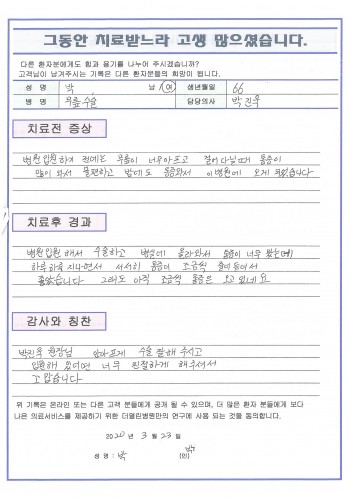 그동안 치료받느라 고생 많으셨습니다.
다른 환자분에게도 힘과 용기를 나누어 주시겠습니까?
고객님이 남겨주시는 기록은 다른 환자분들의 희망이 됩니다.
성 명 박 남 / 여 생년월일 66
병 명 무릎수술 담당의사 박진욱
치료전 증상
병원입원하기 전에는 무릎이 너무아프고 걸어다닐때 통증이
많이 와서 불편하고 밤에도 통증와서 이병원에 오게 되었습니다
치료후 경과
병원입원해서 수술하고 병실에 올라와서 통증이 너무 왔는데
하루하루 지나면서 서서히 통증이 조금씩 줄어들어서
좋았습니다 그래도 아직 조금씩 통증은 오고있네요
감사와 칭찬
박진욱 원장님 안아프게 수술 잘해 주시고
입원해 있더면 너무 친절하게 해주셔서
고맙습니다
위 기록은 온라인 또는 다른 고객 분들에게 공개 될 수 있으며, 더 많은 환자 분들에게 보다
나은 의료서비스를 제공하기 위한 더열린병원만의 연구에 사용 되는 것을 동의합니다.
2020 년 3 월 23 일
성 명 : 박 (인)